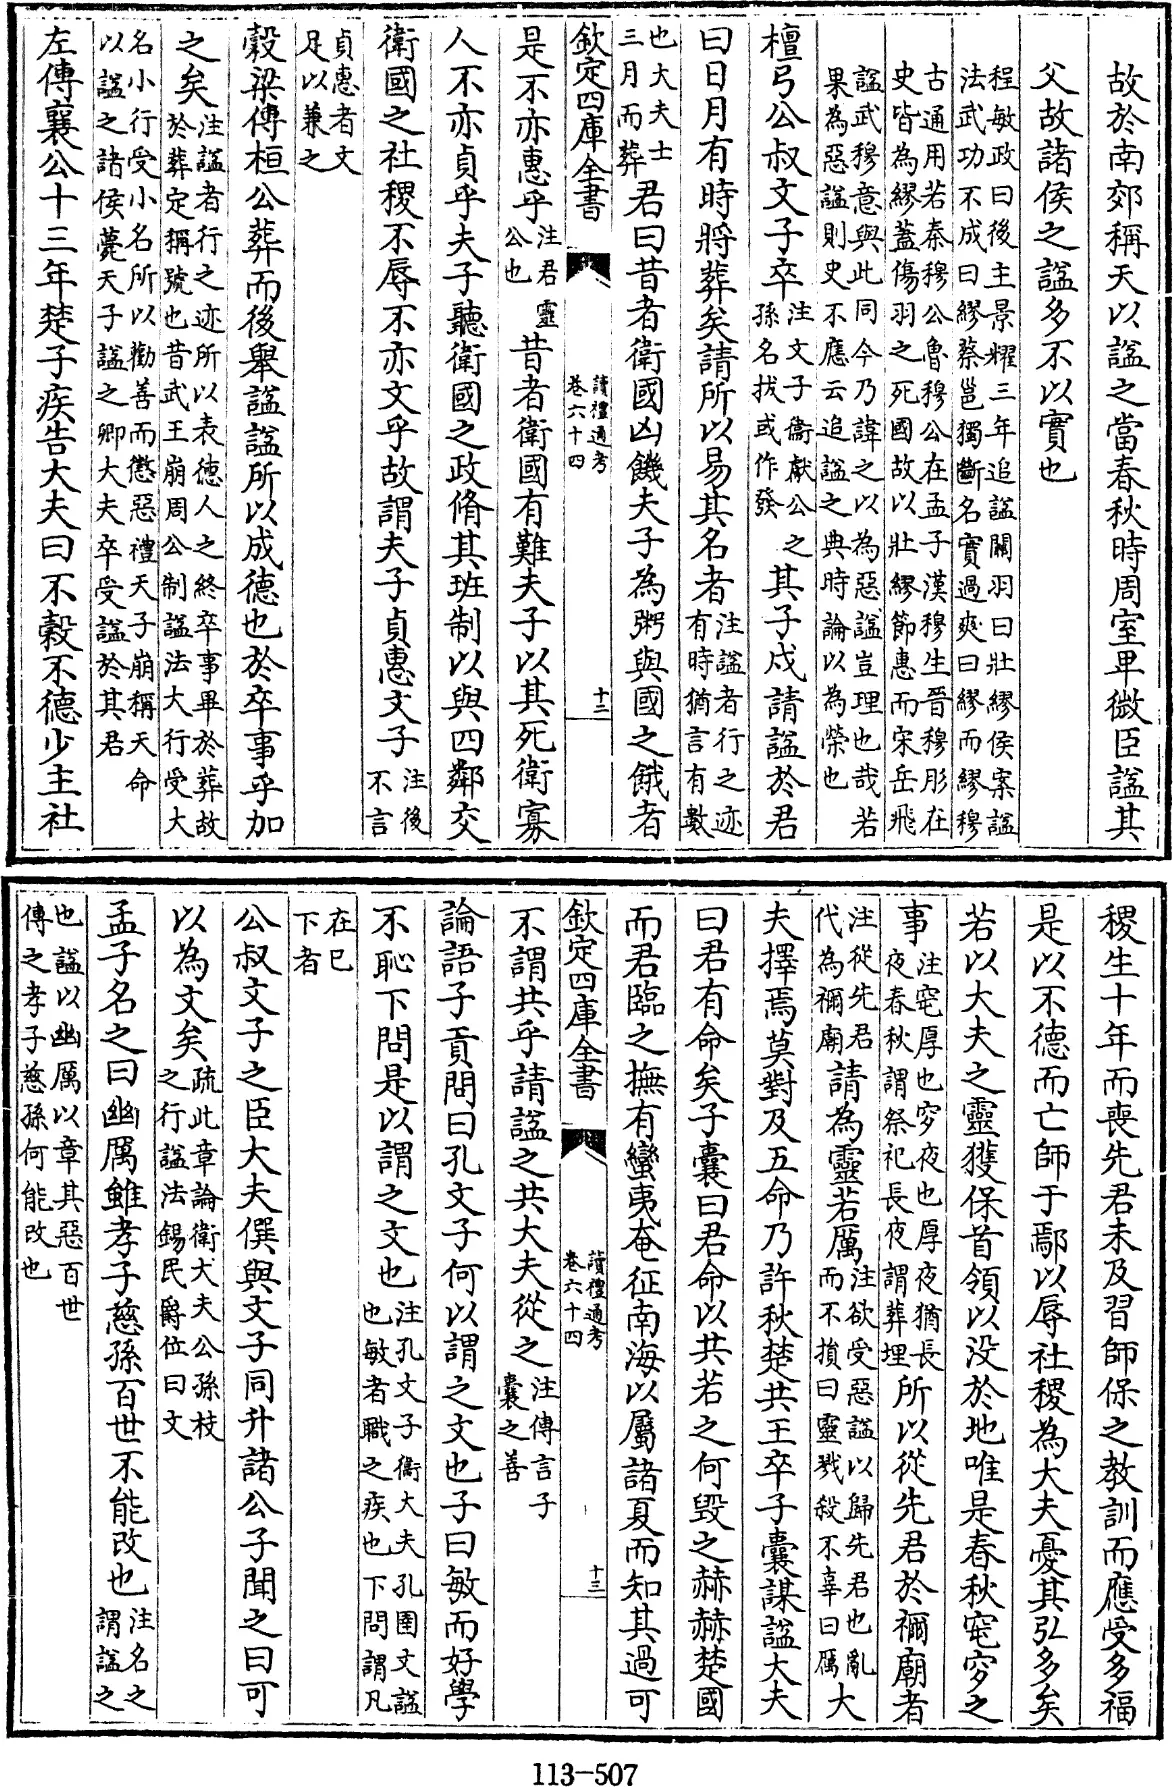 故於南郊稱天以諡之當春秋時周室卑微臣諡其
父故諸侯之諡多不以實也
程敏政曰後主景耀三年追諡關羽曰壯繆侯案諡
法武功不成曰繆蔡邕獨斷名實過爽曰繆而繆穆
古通用若秦穆公魯穆公在孟子漢穆生晉穆彤在
史皆為繆蓋傷羽之死國故以壯繆節惠而宋岳飛
諡武穆意與此同今乃諱之以為惡諡豈理也哉若
果為惡諡則史不應云追諡之典時論以為榮也
檀弓公叔文子卒注文子衞獻公之孫名拔或作發其子戍請諡於君
曰日月有時將葬矣請所以易其名者注諡者行之迹有時猶言有數
也大夫士三月而葬君曰昔者衛國凶饑夫子為粥與國之餓者
欽定四庫全書 讀禮通考 卷六十四 十二
是不亦惠乎注君靈公也昔者衛國有難夫子以其死衛寡
人不亦貞乎夫子聽衛國之政脩其班制以與四鄰交
衛國之社稷不辱不亦文乎故謂夫子貞惠文子注後不言
貞惠者文足以兼之
榖梁傳桓公葬而後舉諡諡所以成德也於卒事乎加
之矣注諡者行之迹所以表德人之終卒事畢於葬故於葬定稱號也昔武王崩周公制諡法大行受大
名小行受小名所以勸善而懲惡禮天子崩稱天命以諡之諸侯薨天子諡之卿大夫卒受諡於其君
左傳襄公十三年楚子疾告大夫曰不榖不德少主社
稷生十年而喪先君未及習師保之教訓而應受多福
是以不德而亡師于鄢以辱社稷為大夫憂其弘多矣
若以大夫之靈獲保首領以没於地唯是春秋窀穸之
事注窀厚也穸夜也厚夜猶長夜春秋謂祭祀長夜謂葬埋所以從先君於禰廟者
注從先君代為禰廟請為靈若厲注欲受惡諡以歸先君也亂而不損曰靈戮殺不辜曰厲大
夫擇焉莫對及五命乃許秋楚共王卒子囊謀諡大夫
曰君有命矣子囊曰君命以共若之何毀之赫赫楚國
而君臨之撫有蠻夷奄征南海以屬諸夏而知其過可
欽定四庫全書 讀禮通考 卷六十四 十三
不謂共乎請諡之共大夫從之注傳言子囊之善
論語子貢問曰孔文子何以謂之文也子曰敏而好學
不恥下問是以謂之文也注孔文子衞大夫孔圉文諡也敏者職之疾也下問謂凡
在已下者
公叔文子之臣大夫僎與文子同升諸公子聞之曰可
以為文矣疏此章論衞大夫公孫枝之行諡法錫民爵位曰文
孟子名之曰幽厲雖孝子慈孫百世不能改也注名之謂諡之
也諡以幽厲以章其惡百世傳之孝子慈孫何能改也
113-507